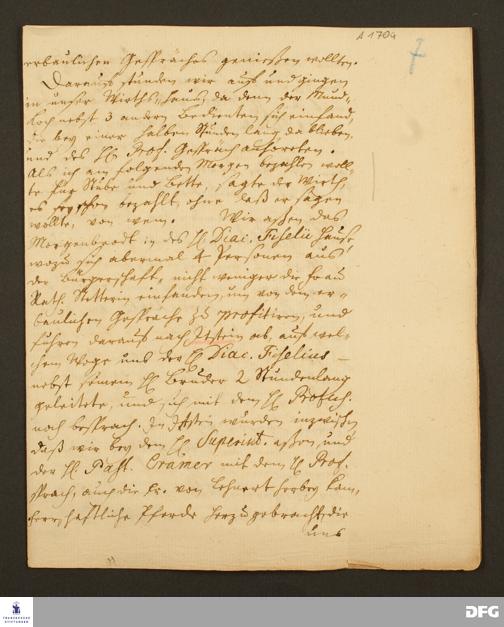 A 1704
7
erbaulichen Gespräches genießen wollten.
Darauf stunden wir auf und gingen
in unser Wirths-Haus, da denn der Mund-
koch nebst 3 andern Bedienten sich einfand,
die bey einer halben Stunden lang da blieben,
und des H. Prof. Gespräch anhöreten.
Als ich am folgenden Morgen bezahlen woll-
te für Stube und Bette, sagte der Wirth,
es sey schon bezahlt, ohne daß er sagen
wollte, von wem. Wir aßen das
Morgenbrodt in des H. Diac. Fiselii Hause
wozu sich abermal 4 Personen aus
der Bürgerschaft, nicht weniger die Frau
Rath. einfanden, um von dem er-
baulichen Gespräche zu profitiren, und
fuhren darauf nach Itstein ab, auf wel-
chem Wege uns der H. Diac. Fiselius
nebst seinem H. Bruder 2 Stundenlang
geleitete, und sich mit dem H. Profess.
noch besprach. In Itstein wurden inzwischen
daß wir bey dem H. Superint. aßen, und
der H. Past. Cramer mit dem H. Prof.
sprach, auch die Fr. von herbey kam,
herrschaftliche Pferde herzu gebracht, die
uns
FRANCKESCHE
STIFTUNGEN
DFG